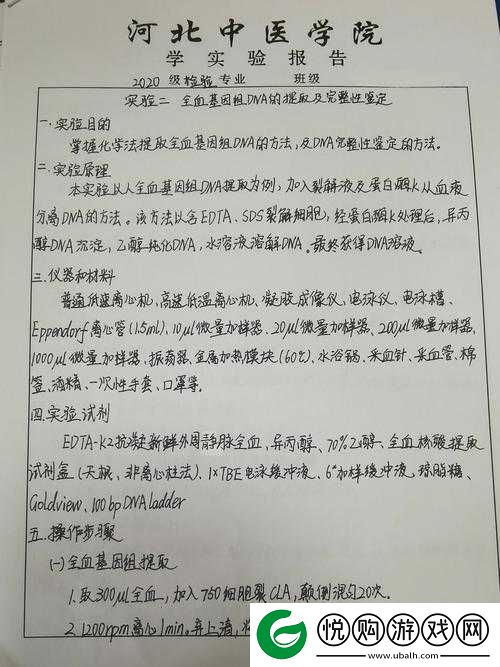 河北中医学院
学实验报告
2020 级检验专业 班级
实验二 全血基因组DNA的提取及完整性鉴定
一.实验目的
掌握化学法提取全血基因组DNA的方法,及DNA完整性鉴定的方法。
二.实验原理
本实验以人全血基因组DNA提取为例,加入裂解液及蛋白酶K从血液
分离DNA的方法。该方法以含EDTA、SDS裂解细胞,经蛋白酶K处理后,异丙
醇DNA沉淀,乙醇纯化DNA,水溶液溶解DNA。最终获得DNA溶液。
三.仪器和材料
普通低速离心机、高速低温离心机、凝胶成像仪、电泳仪、电泳槽、
Eppendorf离心管(1.5ml)、10μl微量加样器、20μl微量加样器、200μl微量加样器、
1000μl微量加样器、振荡器、金属加热模块(60℃)、水浴锅、采血针、采血管、棉
签、酒精、一次性手套、口罩等。
四.实验试剂
EDTA-K2抗凝新鲜外周静脉全血、异丙醇、70%乙醇、全血核酸提取
试剂盒(天根、非离心柱法)、1×TBE电泳缓冲液、6*加样缓冲液、琼脂糖、
Goldview、100bpDNAladder
五.操作步骤
(一)全血基因组提取
1.取300μl全血,加入750细胞裂CLA,颠倒混匀20次。
2.1200rpm离心1min,弃上清,
悦购游戏网
www.ubalh.com